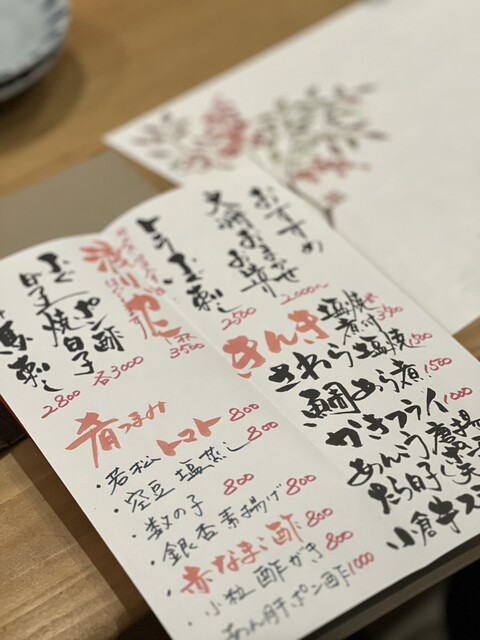 おすすめ
大将おまかせ
お造り
2000〜
トラふぐ刺し
2500
渡りがに
3500
ふぐ ポン酢
白子 焼白子
各3000
馬刺し
2800
きんき 塩焼
煮付
さわら塩焼
1500
鯛あら煮
1500
かきフライ
1000
あんこう唐揚
小倉牛ス
肴つまみ
・若松トマト 800
・空豆塩蒸し 800
・数の子 800
・銀杏素揚げ 800
・赤なまこ酢 800
・小粒酢がき 800
・あん肝ポン酢 1000